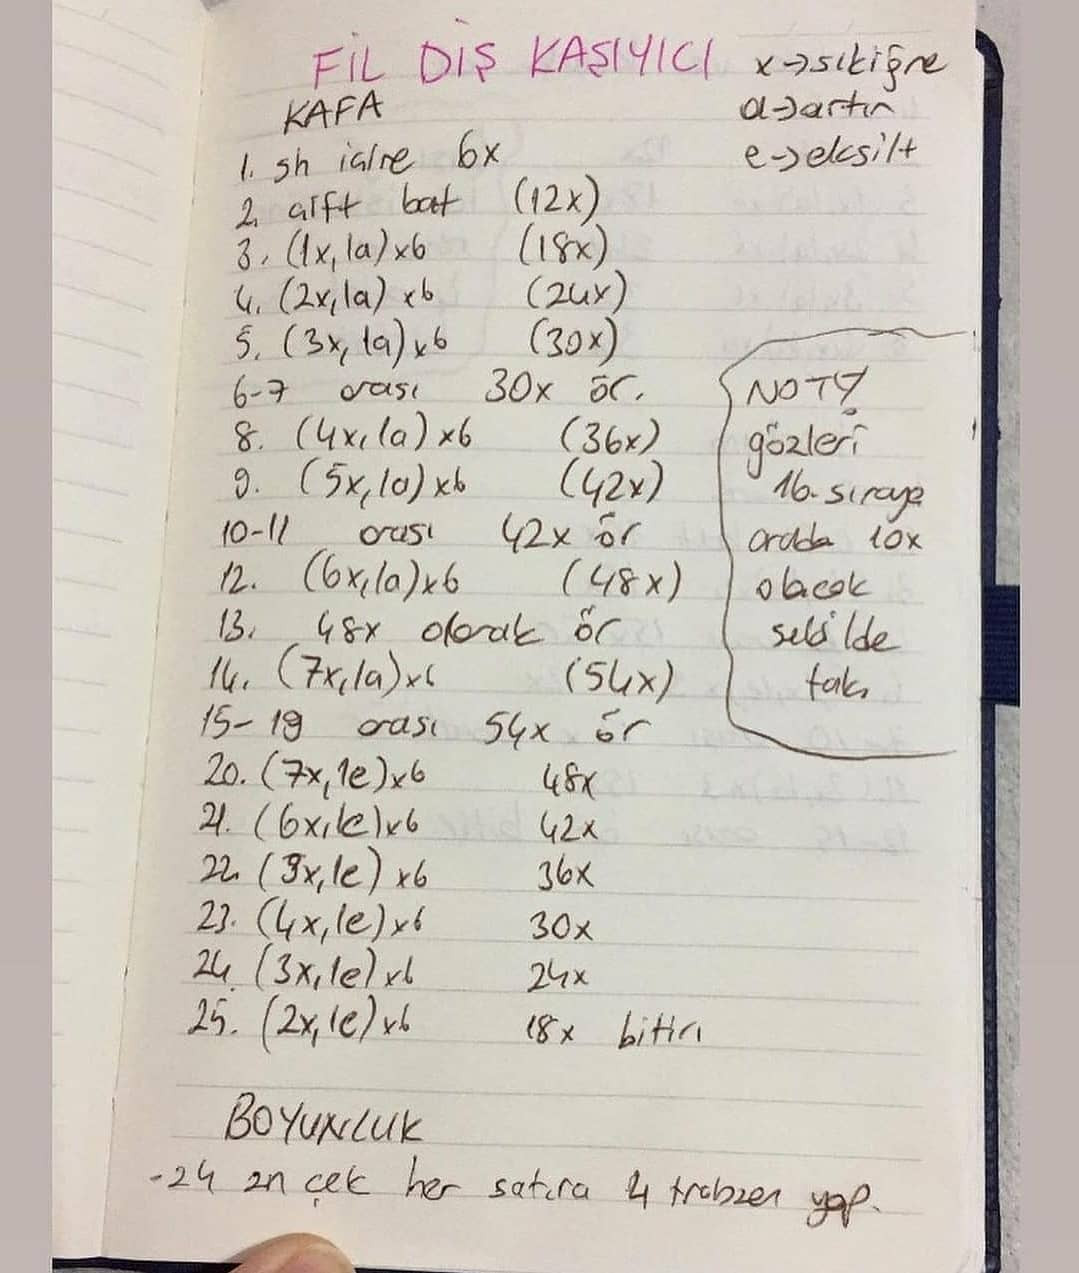 FİL DİŞ KAŞIYICI
x→sıkiğne
a→artır
e→eksilt
KAFA
1. sh içine 6x
2. çift bat (12x)
3. (1x,1a)x6 (18x)
4. (2x,1a)x6 (24x)
5. (3x,1a)x6 (30x)
6-7 arası 30x ör.
8. (4x,1a)x6 (36x)
9. (5x,1a)x6 (42x)
10-11 arası 42x ör
12. (6x,1a)x6 (48x)
13. 48x olarak ör
14. (7x,1a)x6 (54x)
15-19 arası 54x ör
20. (7x,1e)x6 48x
21. (6x,1e)x6 42x
22. (5x,1e)x6 36x
23. (4x,1e)x6 30x
24. (3x,1e)x6 24x
25. (2x,1e)x6 18x bitir
NOT!
gözleri
16. sıraya
arada 10x
olacak
şekilde
tak
BOYUNLUK
-24 zn çek her satıra 4 trabzan yap.